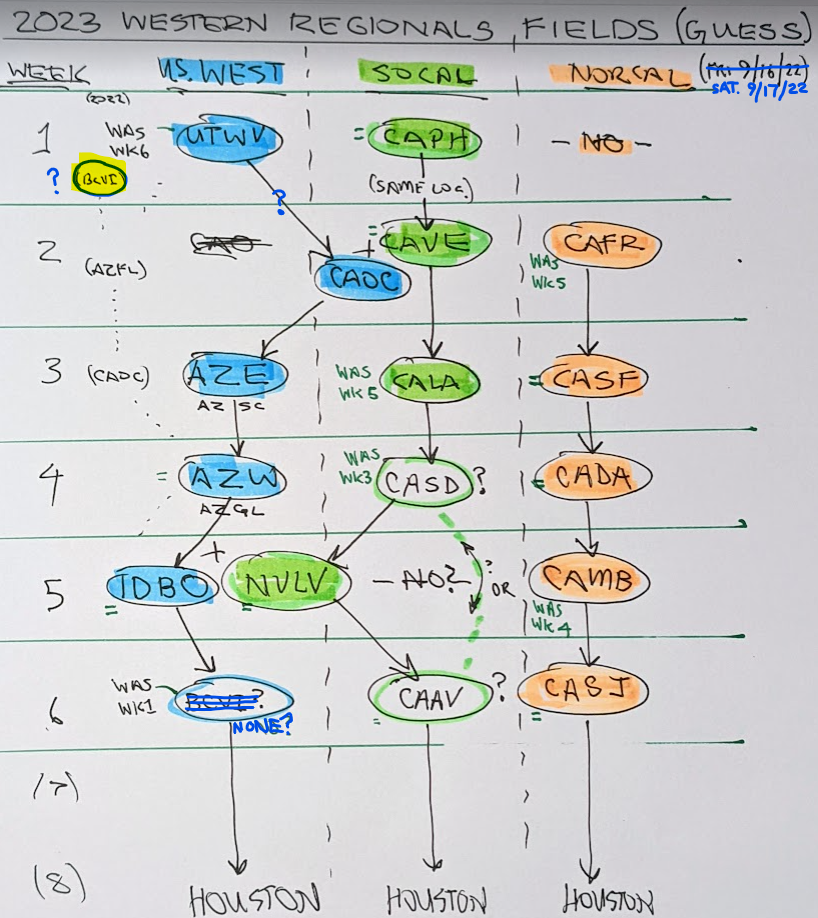 2023 WESTERN REGIONALS FIELDS (GUESS)
WEEK US. WEST SOCAL NORCAL (FRI 9/16/22)
SAT. 9/17/22
(2022)
1 WAS WK6 UTWV = CAPH - NO -
? BCVI
? (SAME LOC.)
2 CAVE CAFR
(AZFL) + CADC WAS WK5
3 (CADC) AZE WAS WK5 CALA = CASF
AZ SC
4 = AZW WAS WK3 CASD? = CADA
AZ GL
+
5 IDBO NVLV - NO? - ? OR CAMB
= = WAS WK4
6 WAS WK1 BCVI? CAAV ? CASJ
NONE? = =
(7)
(8) HOUSTON HOUSTON HOUSTON